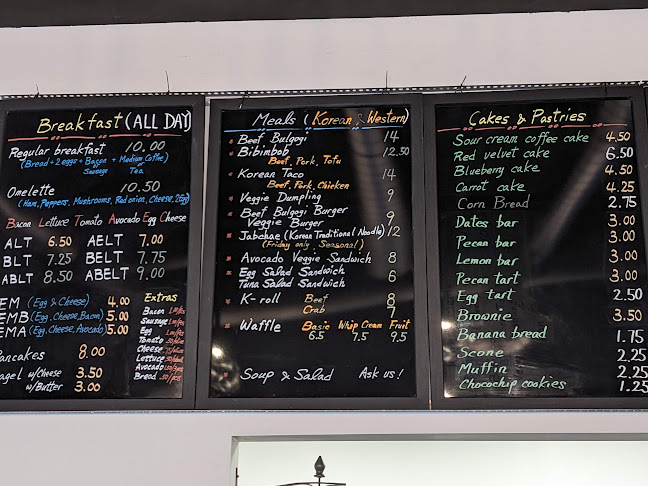 Breakfast (ALL DAY)
Regular breakfast 10.00
(Bread + 2 eggs + Bacon + Medium Coffee)
Sausage Tea
Omelette 10.50
(Ham, Peppers, Mushrooms, Red onion, Cheese, 2Egg)
Bacon Lettuce Tomato Avocado Egg Cheese
ALT 6.50 AELT 7.00
BLT 7.25 BELT 7.75
ABLT 8.50 ABELT 9.00
EM (Egg & Cheese) 4.00
EMB (Egg, Cheese, Bacon) 5.00
EMA (Egg, Cheese, Avocado) 5.00
Pancakes 8.00
Bagel w/Cheese 3.50
w/Butter 3.00
Extras
Bacon
Sausage
Egg
Tomato
Cheese
Lettuce
Avocado
Bread
Meals (Korean & Western)
Beef Bulgogi 14
Bibimbob 12.50
Beef, Pork, Tofu
Korean Taco 14
Beef, Pork, Chicken
Veggie Dumpling 9
Beef Bulgogi Burger 9
Veggie Burger
Jabchae (Korean Traditional Noodle) 12
(Friday only Seasonal)
Avocado Veggie Sandwich 8
Egg Salad Sandwich 6
Tuna Salad Sandwich
K-roll Beef 8
Crab 7
Waffle Basic Whip Cream Fruit
6.5 7.5 9.5
Soup & Salad Ask us!
Cakes & Pastries
Sour cream coffee cake 4.50
Red velvet cake 6.50
Blueberry cake 4.50
Carrot cake 4.25
Corn Bread 2.75
Dates bar 3.00
Pecan bar 3.00
Lemon bar 3.00
Pecan tart 3.00
Egg tart 2.50
Brownie 3.50
Banana bread 1.75
Scone 2.25
Muffin 2.25
Chocochip cookies 1.25